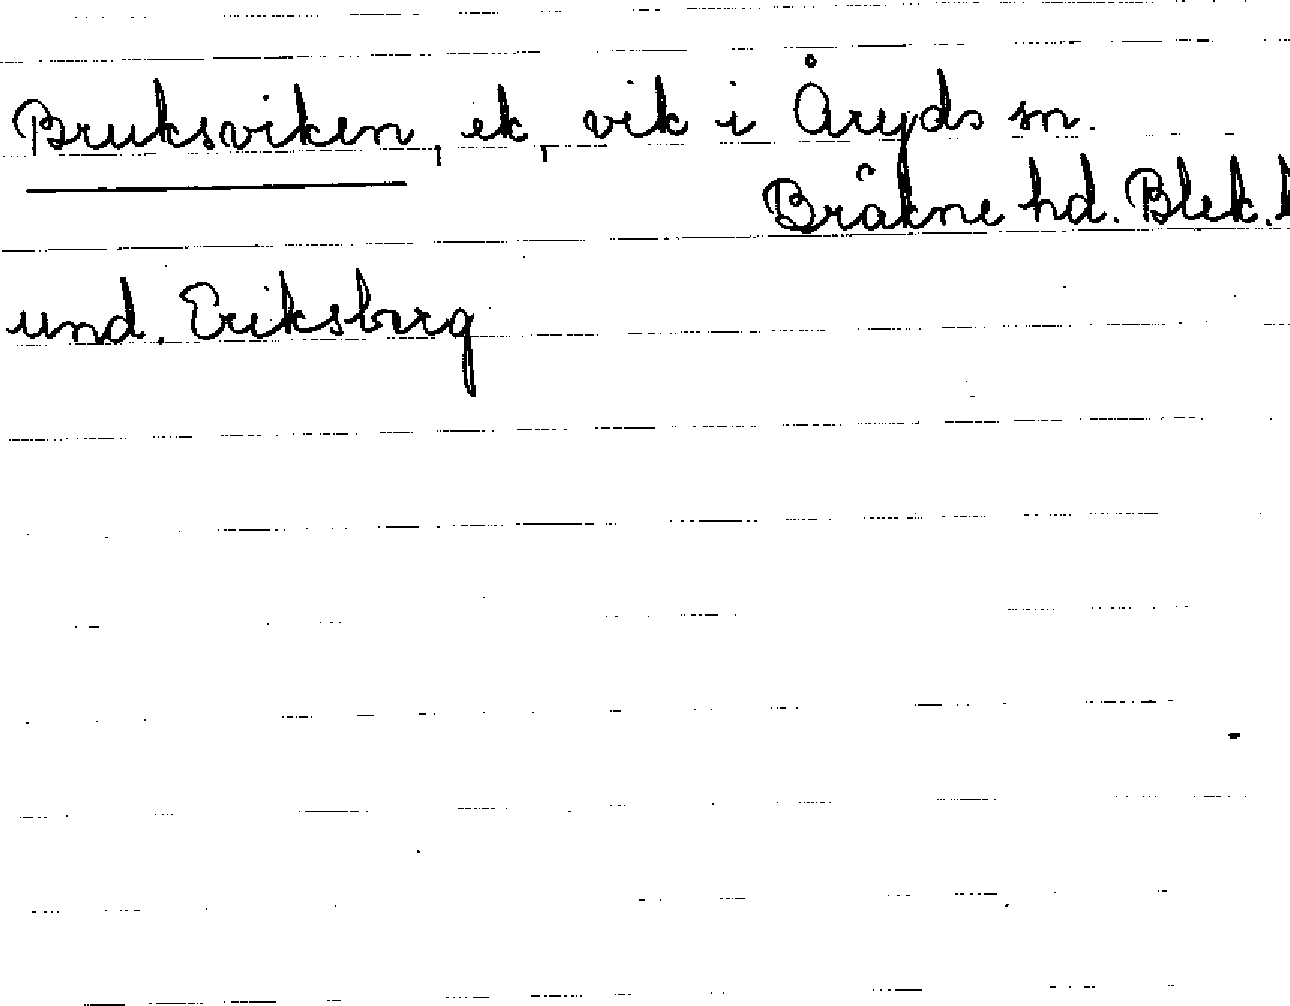 Bruksviken, ek, vik i Åryds sn.
Bräkne hd. Blek. l
und. Eriksberg